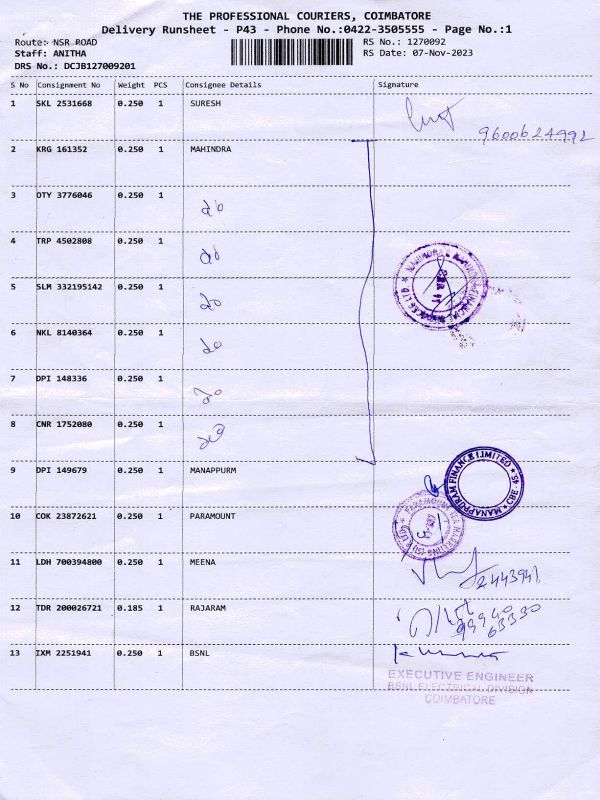 THE PROFESSIONAL COURIERS, COIMBATORE
Delivery Runsheet - P43 - Phone No.:0422-3505555 - Page No.:1
Route: NSR ROAD
Staff: ANITHA
DRS No.: DCJB127009201
RS No.: 1270092
RS Date: 07-Nov-2023
S No Consignment No Weight PCS Consignee Details Signature
1 SKL 2531668 0.250 1 SURESH
9600624992
2 KRG 161352 0.250 1 MAHINDRA
3 DTY 3776046 0.250 1 do
4 TRP 4502808 0.250 1 do
5 SLM 332195142 0.250 1 do
6 NKL 8140364 0.250 1 do
7 DPI 148336 0.250 1 do
8 CNR 1752080 0.250 1 do
9 DPI 149679 0.250 1 MANAPPURM
MANAPPURAM FINANCE LIMITED * CBE
10 COK 23872621 0.250 1 PARAMOUNT
11 LDH 700394800 0.250 1 MEENA
2443941
12 TDR 200026721 0.185 1 RAJARAM
99940
63330
13 IXM 2251941 0.250 1 BSNL
EXECUTIVE ENGINEER
BSNL ELECTRICAL DIVISION
COIMBATORE